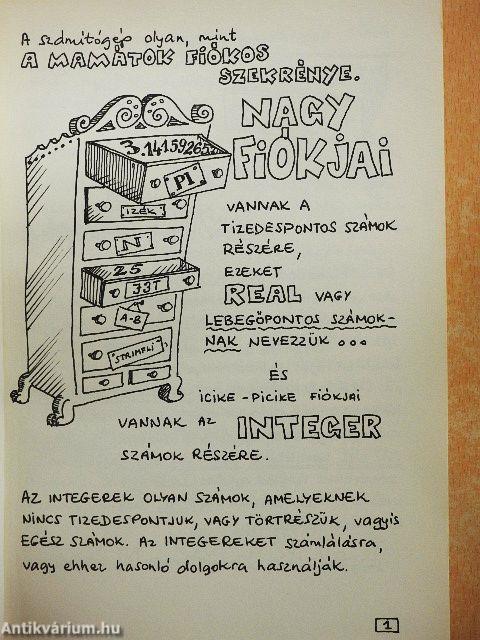 A számítógép olyan, mint
A MAMÁTOK FIÓKOS
SZEKRÉNYE.
NAGY
FIÓKJAI
VANNAK A
TIZEDESPONTOS SZÁMOK
RÉSZÉRE,
EZEKET
REAL VAGY
LEBEGŐPONTOS SZÁMOK-
NAK NEVEZZÜK ...
ÉS
ICIKE-PICIKE FIÓKJAI
VANNAK AZ INTEGER
SZÁMOK RÉSZÉRE.
3.14159265
PI
IZÉK
N
25
JJT
A-B
STRIMFLI
AZ INTEGEREK OLYAN SZÁMOK, AMELYEKNEK
NINCS TIZEDESPONTJUK, VAGY TÖRTRÉSZÜK, vagyis
EGÉSZ SZÁMOK. AZ INTEGEREKET számlálásra,
vagy ehhez hasonló dolgokra használják.
1
Antikvárium.hu